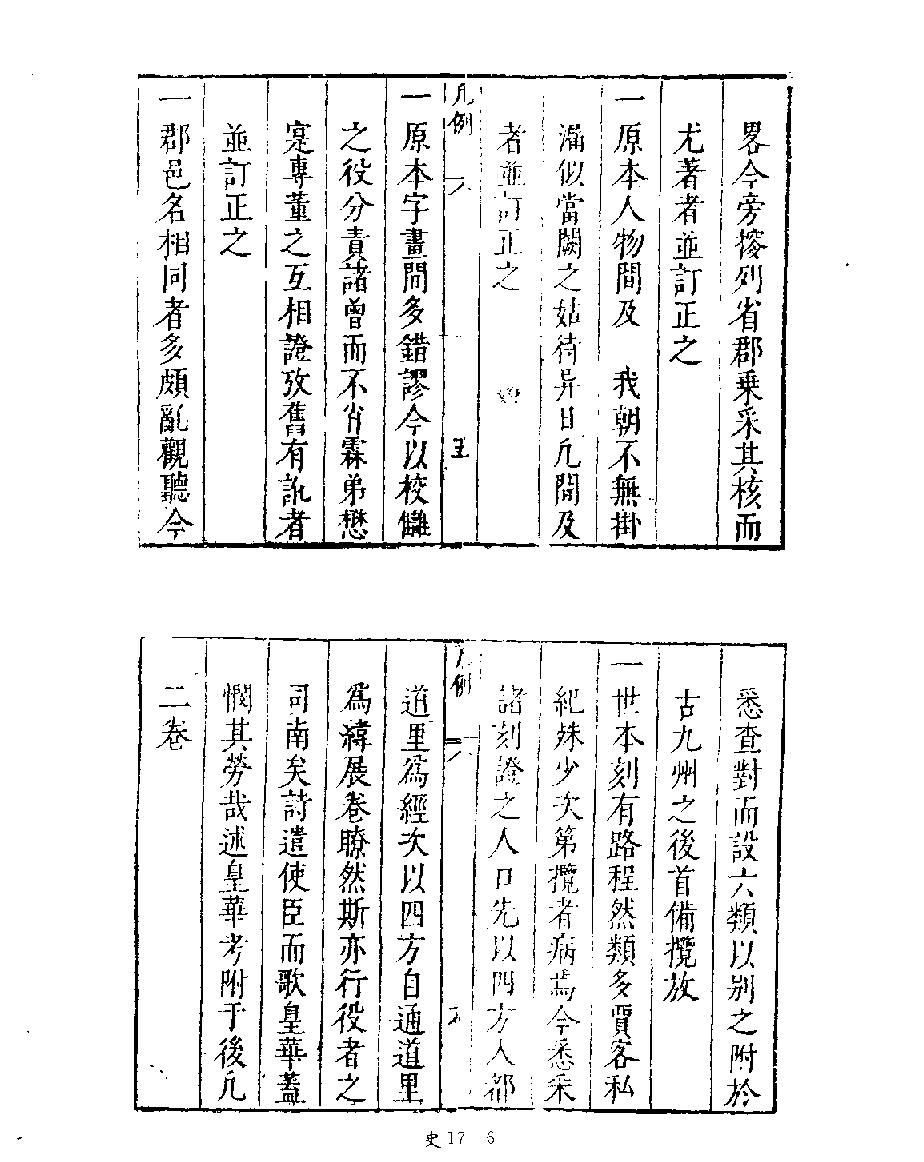 畧今旁搉列省郡乗采其核而
尤著者並訂正之
一原本人物間及　我朝不無掛
漏似當闕之姑待异日凡間及
者並訂正之
凡例　五
一原本字畫間多錯謬今以校讎
之役分責諸曾而不肖霖弟懋
寔專董之互相證攷舊有訛者
並訂正之
一郡邑名相同者多頗亂觀聽今
悉查對而設六類以别之附於
古九州之後首備攬放
一世本刻有路程然類多賈客私
紀殊少次第攬者病焉今悉采
諸刻證之人口先以四方入都
凡例
道里爲經次以四方自通道里
爲緯展卷瞭然斯亦行役者之
司南矣詩遣使臣而歌皇華蓋
憫其勞哉述皇華考附于後凡
二卷
史17-6